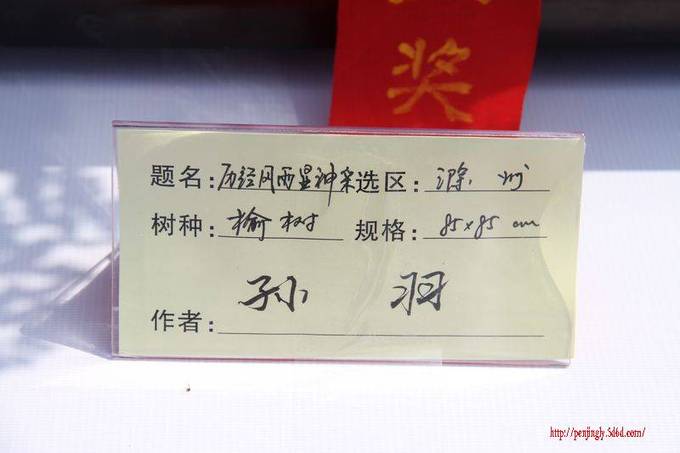 奖
题名:历经风雨显神采 选区:滁州
树种:榆树 规格:85×85cm
作者:孙羽
http://penjingly.5d6d.com/